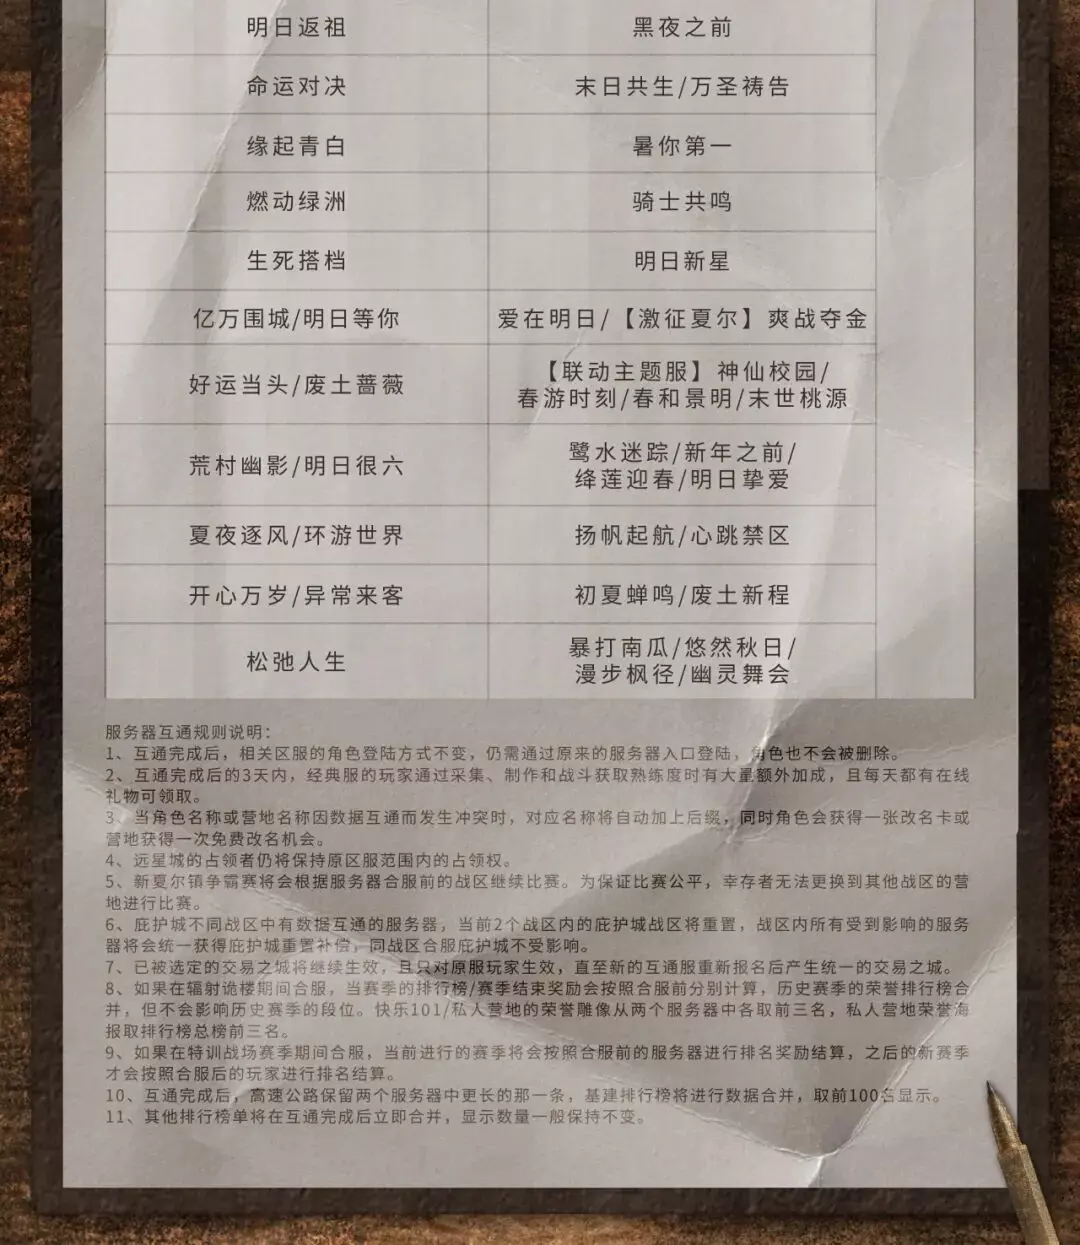 明日返祖 黑夜之前
命运对决 末日共生/万圣祷告
缘起青白 暑你第一
燃动绿洲 骑士共鸣
生死搭档 明日新星
亿万围城/明日等你 爱在明日/【激征夏尔】爽战夺金
好运当头/废土蔷薇 【联动主题服】神仙校园/
春游时刻/春和景明/末世桃源
荒村幽影/明日很六 鹭水迷踪/新年之前/
绛莲迎春/明日挚爱
夏夜逐风/环游世界 扬帆起航/心跳禁区
开心万岁/异常来客 初夏蝉鸣/废土新程
松弛人生 暴打南瓜/悠然秋日/
漫步枫径/幽灵舞会
服务器互通规则说明：
1、互通完成后，相关区服的角色登陆方式不变，仍需通过原来的服务器入口登陆，角色也不会被删除。
2、互通完成后的3天内，经典服的玩家通过采集、制作和战斗获取熟练度时有大量额外加成，且每天都有在线
礼物可领取。
3、当角色名称或营地名称因数据互通而发生冲突时，对应名称将自动加上后缀，同时角色会获得一张改名卡或
营地获得一次免费改名机会。
4、远星城的占领者仍将保持原区服范围内的占领权。
5、新夏尔镇争霸赛将会根据服务器合服前的战区继续比赛。为保证比赛公平，幸存者无法更换到其他战区的营
地进行比赛。
6、庇护城不同战区中有数据互通的服务器，当前2个战区内的庇护城战区将重置，战区内所有受到影响的服务
器将会统一获得庇护城重置补偿，同战区合服庇护城不受影响。
7、已被选定的交易之城将继续生效，且只对原服玩家生效，直至新的互通服重新报名后产生统一的交易之城。
8、如果在辐射诡楼期间合服，当赛季的排行榜/赛季结束奖励会按照合服前分别计算，历史赛季的荣誉排行榜合
并，但不会影响历史赛季的段位。快乐101/私人营地的荣誉雕像从两个服务器中各取前三名，私人营地荣誉海
报取排行榜总榜前三名。
9、如果在特训战场赛季期间合服，当前进行的赛季将会按照合服前的服务器进行排名奖励结算，之后的新赛季
才会按照合服后的玩家进行排名结算。
10、互通完成后，高速公路保留两个服务器中更长的那一条，基建排行榜将进行数据合并，取前100名显示。
11、其他排行榜单将在互通完成后立即合并，显示数量一般保持不变。